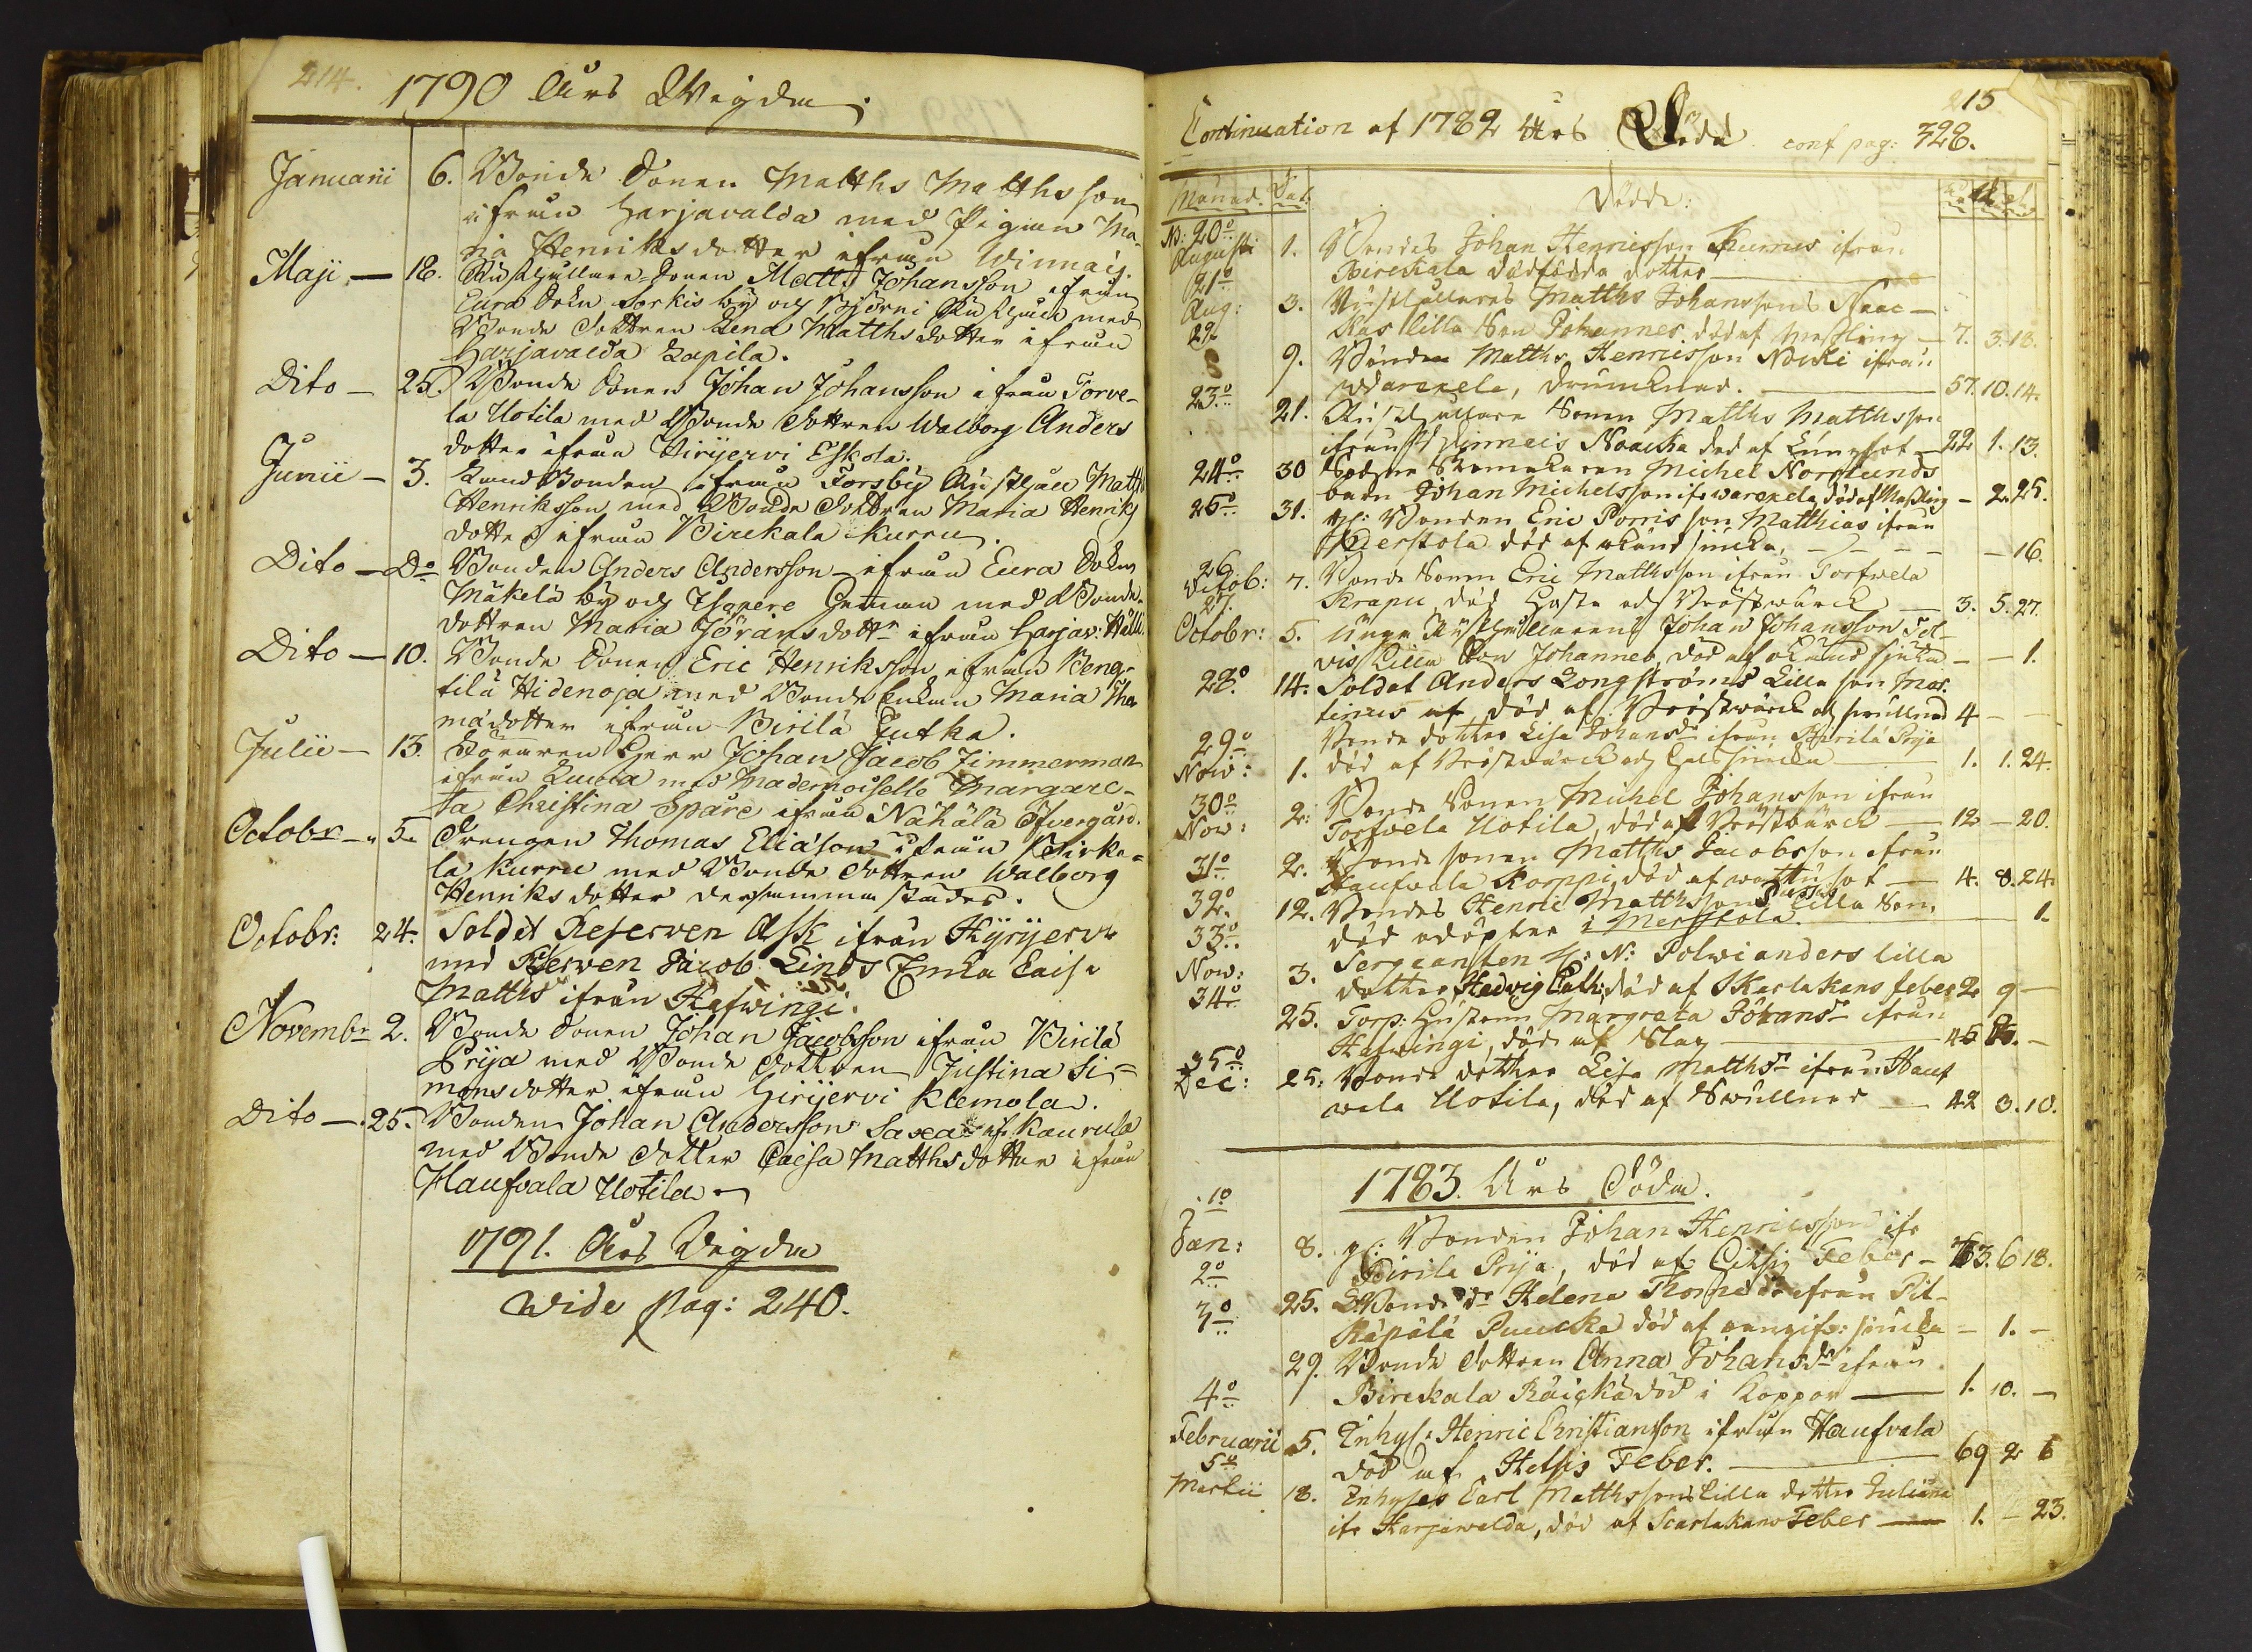 214.
1790 Års Wigda
Januarii 6. Bonde Sonen Matths Matthsson
ifrån Harjavalda med Pigan Ma-
ria Henriksdotter ifrån Winnais.
Maji — 18. Rusthållare-Sonen Matts Johansson ifrån
Eura Sokn Sorkis by och
Bonde Dottren Lena Matthsdotter ifrån
Harjavalda Kapila.
Dito — 25. Bonde Sonen Johan Johansson ifrån Torve-
la Uotila med Bonde Dottren Walborg Anders
dotter ifrån Hirijervi Eskola.
Junii — 3. Bonden ifrån Forsby Matths
Henriksson med Bonde Dottren Maria Henriks
dotter ifrån Birekala Kurru.
Dito — Do Bonden Anders Andersson ifrån Eura Sokn
Mäkelä by och med Bonde-
dottren Maria Jöransdottr ifrån Harjav:
Dito — 10. Bonde Sonen Eric Henriksson ifrån Beng-
tilä Hidenoja med Bonde Enkan Maria Tho
madotter ifrån Birilä Jutka.
Julii — 13. Herr Johan Jacob Zimmerman
ifrån med Mademoiselle Margare-
ta Christina Spåre ifrån Nähälä Öfvergård.
Octobr — 5. Drengen Thomas Eliason ifrån Pirke-
la Kurru med Bonde Dottren Walborg
Henriksdotter dersammastädes.
Octobr: 24. Soldat Reserven Ask ifrån Kyrijervi
med Reserven Jacob Linds Enka Caisa
Matths ifrån Hafwingi.
Novembr 2. Bonde Sonen Johan Jacobsson ifrån Birilä
Prija med Bonde Dottren Justina Si-
monsdotter ifrån Hirijervi Klemola.
Dito — 25. Bonden Johan Andersson Saxa af Kaurula
med Bonde Dotter Caisa Matthsdotter ifrån
Haufvala Uotila
1791. Års Vigda
wide pag: 240.
215
Continuation af 1782 Års Döda conf pag: 328.
Månad. Dat. Döde:
N: 20o Augusti 1. Bondes Johan Henricsson Kurrus ifrån
Birekala dödfödda dotter
21o Aug: 3. Rusthållares Matths Johanssons Naac-
kas lilla Son Johannes. död af Messling — 7. 3.18.
22 9. Bonden Matths Henricsson Noucki ifrån
Warexela, drunknad. — 57. 10. 14.
23o 21. Rusthållare Sonen Matths Matthsson
ifrån Winnais Naacka död af Lungsot — 22 1. 13.
24o 30 Michel Norrlunds
barn Johan Michelsson ifr Warexela död af Messling — 2.25.
25o 31. gl: Bonden Eric Porris son Matthias ifrån
Merstola död af okänd siucka, — 16.
26 Octob: 7. Bonde Sonen Eric Matthsson ifrån Torfwela
Krapu, död Hosta och Bröstwärck — 3. 5. 27.
27 Octobr: 5. Unga Rusthållarens Johan Johansson Tol-
vis lilla Son Johannes, död af okänd siucka — 1.
28o 14. Soldat Anders Longströms Lilla son Mar-
tinus död af Bröstwärck och swullnad 4 —
29o Now: 1. Bonde dotter Lisa Johansdr ifrån Birilä Prija
död af Bröstwärck och Halssiucka — 1. 1. 24.
30o Now: 2. Bonde Sonen Michel Johansson ifrån
Torfvela Uotila, död af Bröstwärck — 12 — 20.
31o 2. Bonde sonen Matths Jacobsson ifrån
Haufvala Korppi, död af wattusot — 4. 8. 24.
32o 12. Bondes Henric Matthssons lilla Son.
död odöpter i Merstola. — 1.
33o Now: 3. Sergeanten H: N: Polwianders lilla
dotter Hedvig Cath: död af Skarlakans feber 2 9 —
34o 25. Torp: Hustrun Margreta Johansdr ifrån
Hafwingi, död af Slag — 45 —
35o Dec: 25. Bonde dotter Lisa Matthsdr ifrån Hauf
wala Uotila, död af Swullnad — 42 3. 10.
1783. Års Döda.
1o Jan: 8. gl: Bonden Johan Henricsson ifr
Birila Prija, död af Hetsig Feber — 63. 6 18.
2o 25. Bonde dr Helena Thomedr ifrån Pit-
käpälä Puucka död af siucka — 1. —
3o 29. Bonde Dottren Anna Johansdr ifrån
4o Birekala Räickä död i Koppor — 1. 10. —
Februarii 5. Inhys: Henric Christiansson ifrån Haufvala
5o död af Hetsig Feber. — 69 2 6
Martii 18. Inhyses Carl Matthssons lilla dotter Juliana
ifr Harjawalda, död af Scarlakans Feber — 1. — 23.